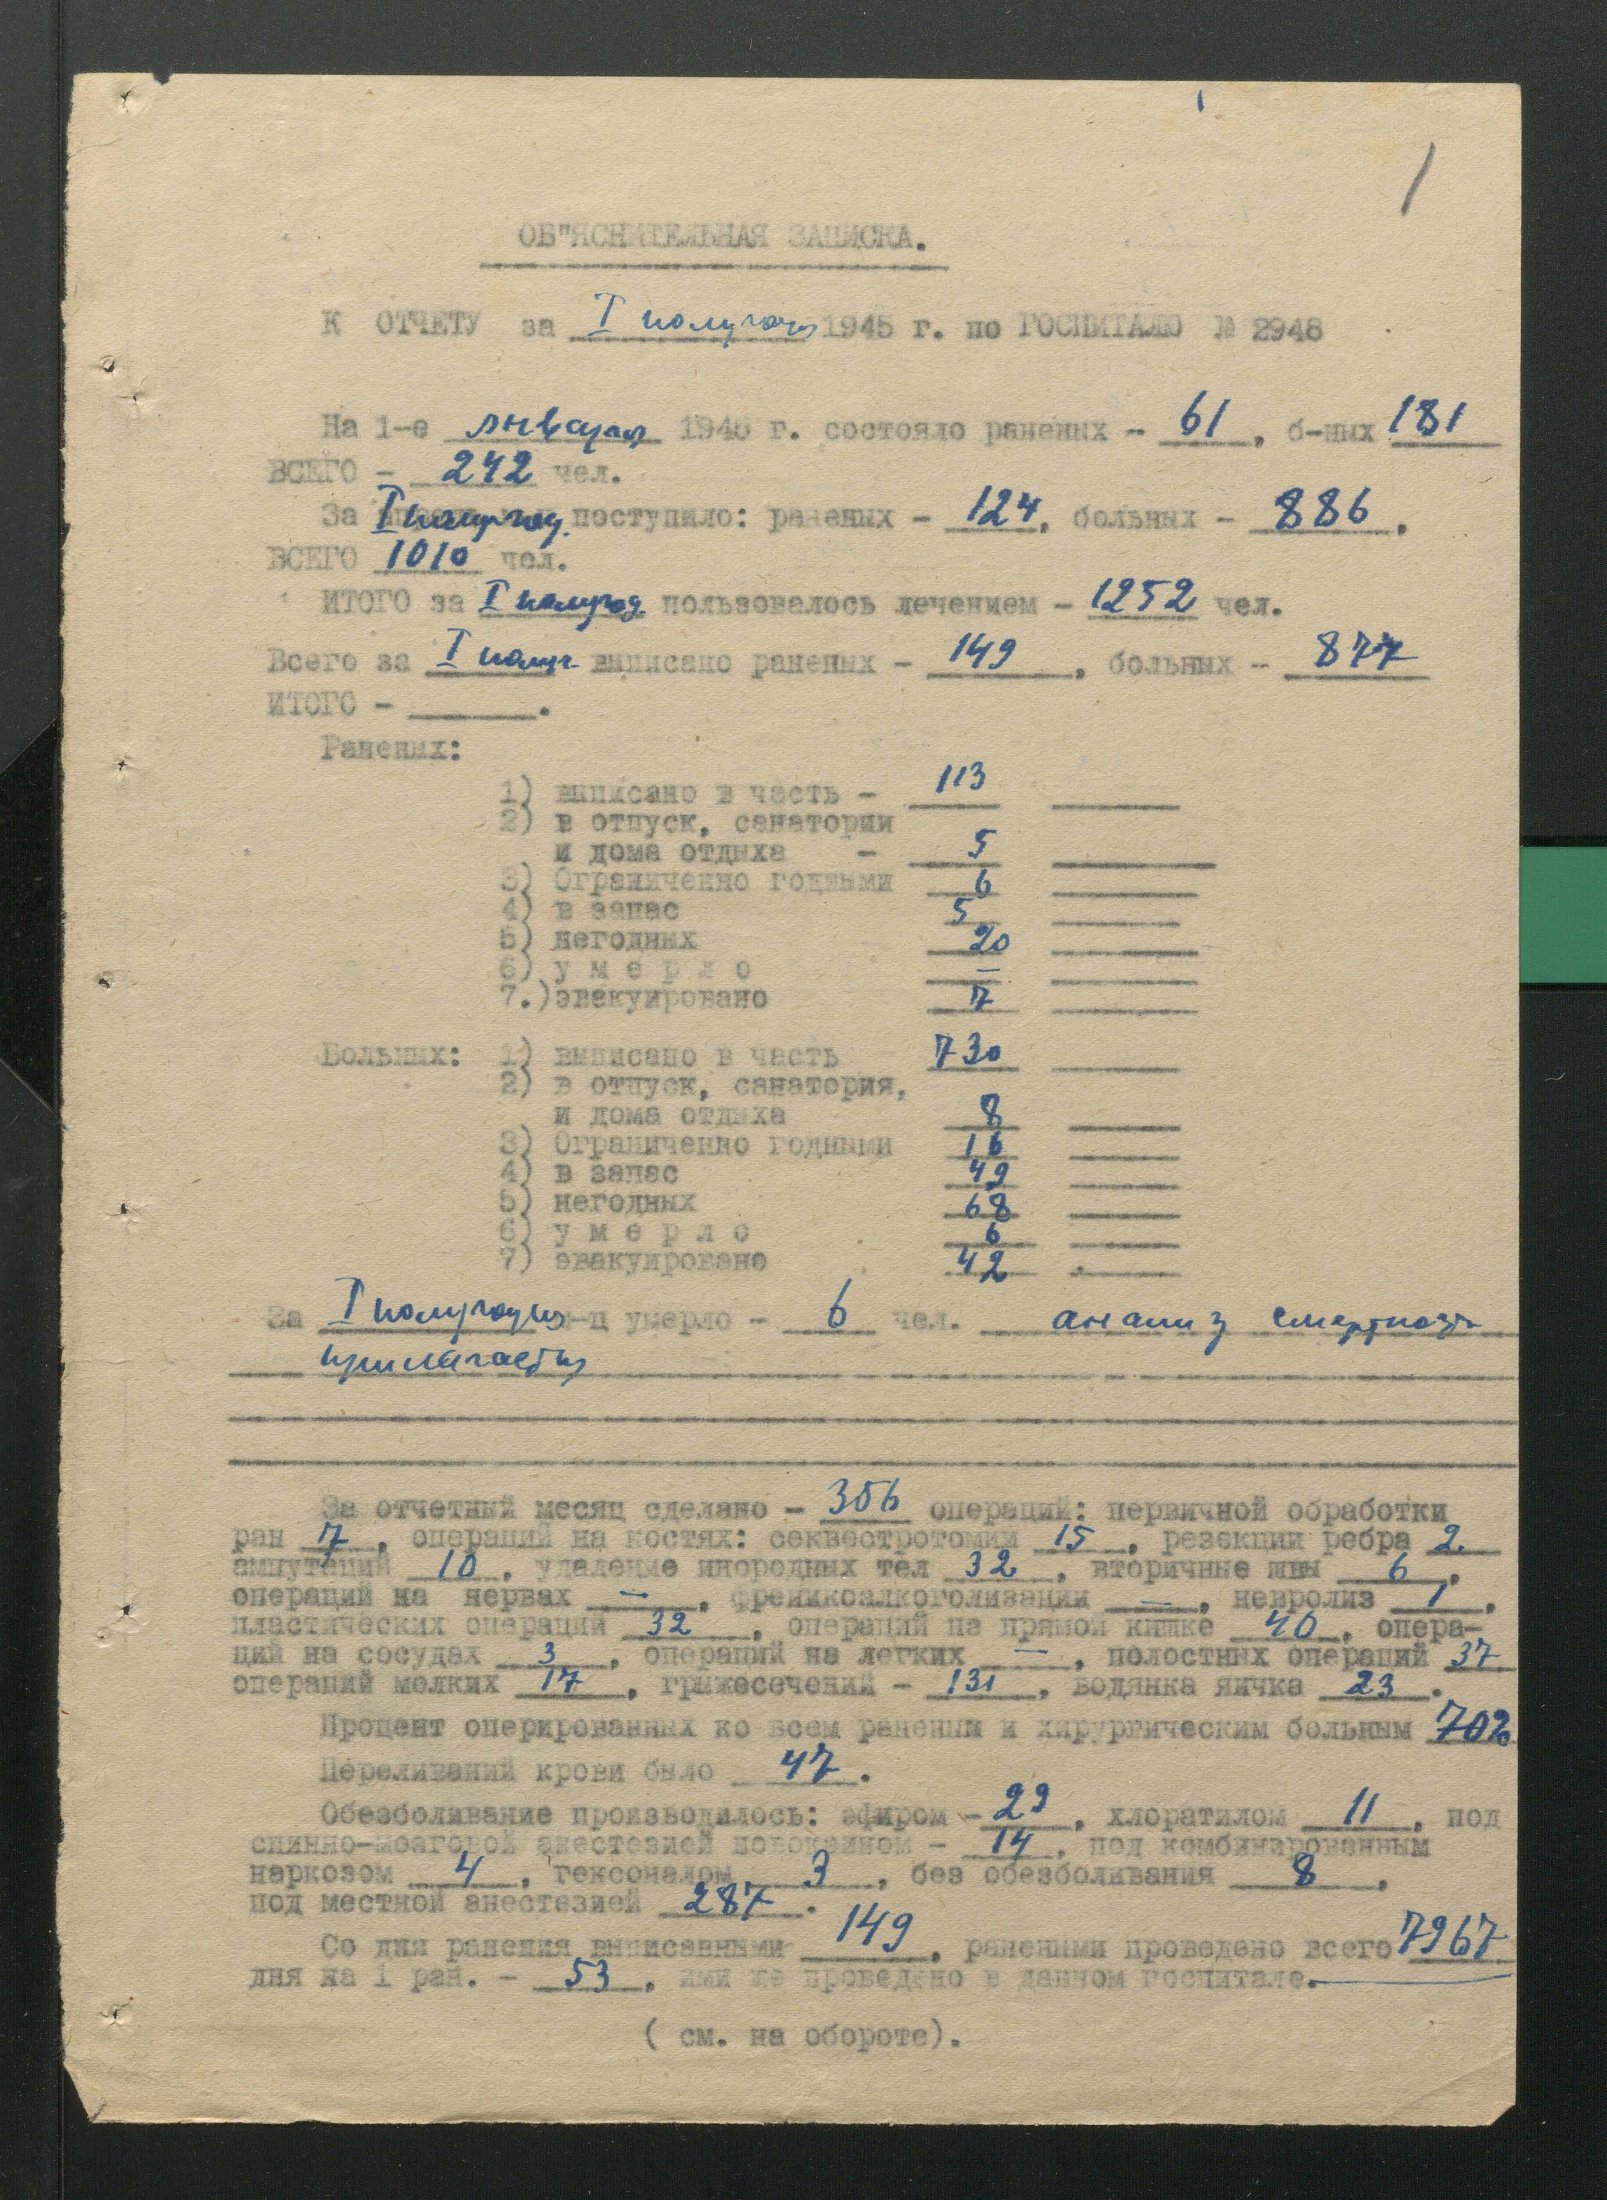 1
ОБ"ЯСНИТЕЛЬНАЯ ЗАПИСКА.
К ОТЧЕТУ за I полугодие 1945 г. по ГОСПИТАЛЮ № 2948
На 1-е января 1945 г. состояло раненых - 61, б-ных 181
ВСЕГО - 242 чел.
За I полугод. поступило: раненых - 124, больных - 886.
ВСЕГО 1010 чел.
ИТОГО за I полугод. пользовалось лечением - 1252 чел.
Всего за I полуг. выписано раненых - 149, больных - 877
ИТОГО - ______.
Раненых:
1) выписано в часть - 113
2) в отпуск, санатории
и дома отдыха - 5
3) Ограниченно годными 6
4) в запас 5
5) негодных 20
6) у м е р л о —
7.) эвакуировано 7
Больных: 1) выписано в часть 730
2) в отпуск, санатория,
и дома отдыха 8
3) Ограниченно годными 16
4) в запас 49
5) негодных 68
6) у м е р л о 6
7) эвакуировано 42
За I полугодие м-ц умерло - 6 чел. анализ смертности
прилагается
За отчетный месяц сделано - 356 операций: первичной обработки
ран 7, операций на костях: секвестротомии 15, резекции ребра 2.
ампутаций 10, удаление инородных тел 32, вторичные швы 6,
операций на нервах —, френикоалкоголизации —, невролиз 1,
пластических операций 32, операций на прямой кишке 40, опера-
ций на сосудах 3, операций на легких —, полостных операций 37
операций мелких 17, грыжесечений - 131, водянка яичка 23.
Процент оперированных ко всем раненым и хирургическим больным 70%
Переливаний крови было 47.
Обезболивание производилось: эфиром - 29, хлорэтилом 11, под
спинно-мозговой анестезией новокаином - 14, под комбинированным
наркозом 4, гексоналом 3, без обезболивания 8,
под местной анестезией 287.
Со дня ранения выписанными 149, ранеными проведено всего 7967
дня на 1 ран. - 53, ими же проведено в данном госпитале.
( см. на обороте).